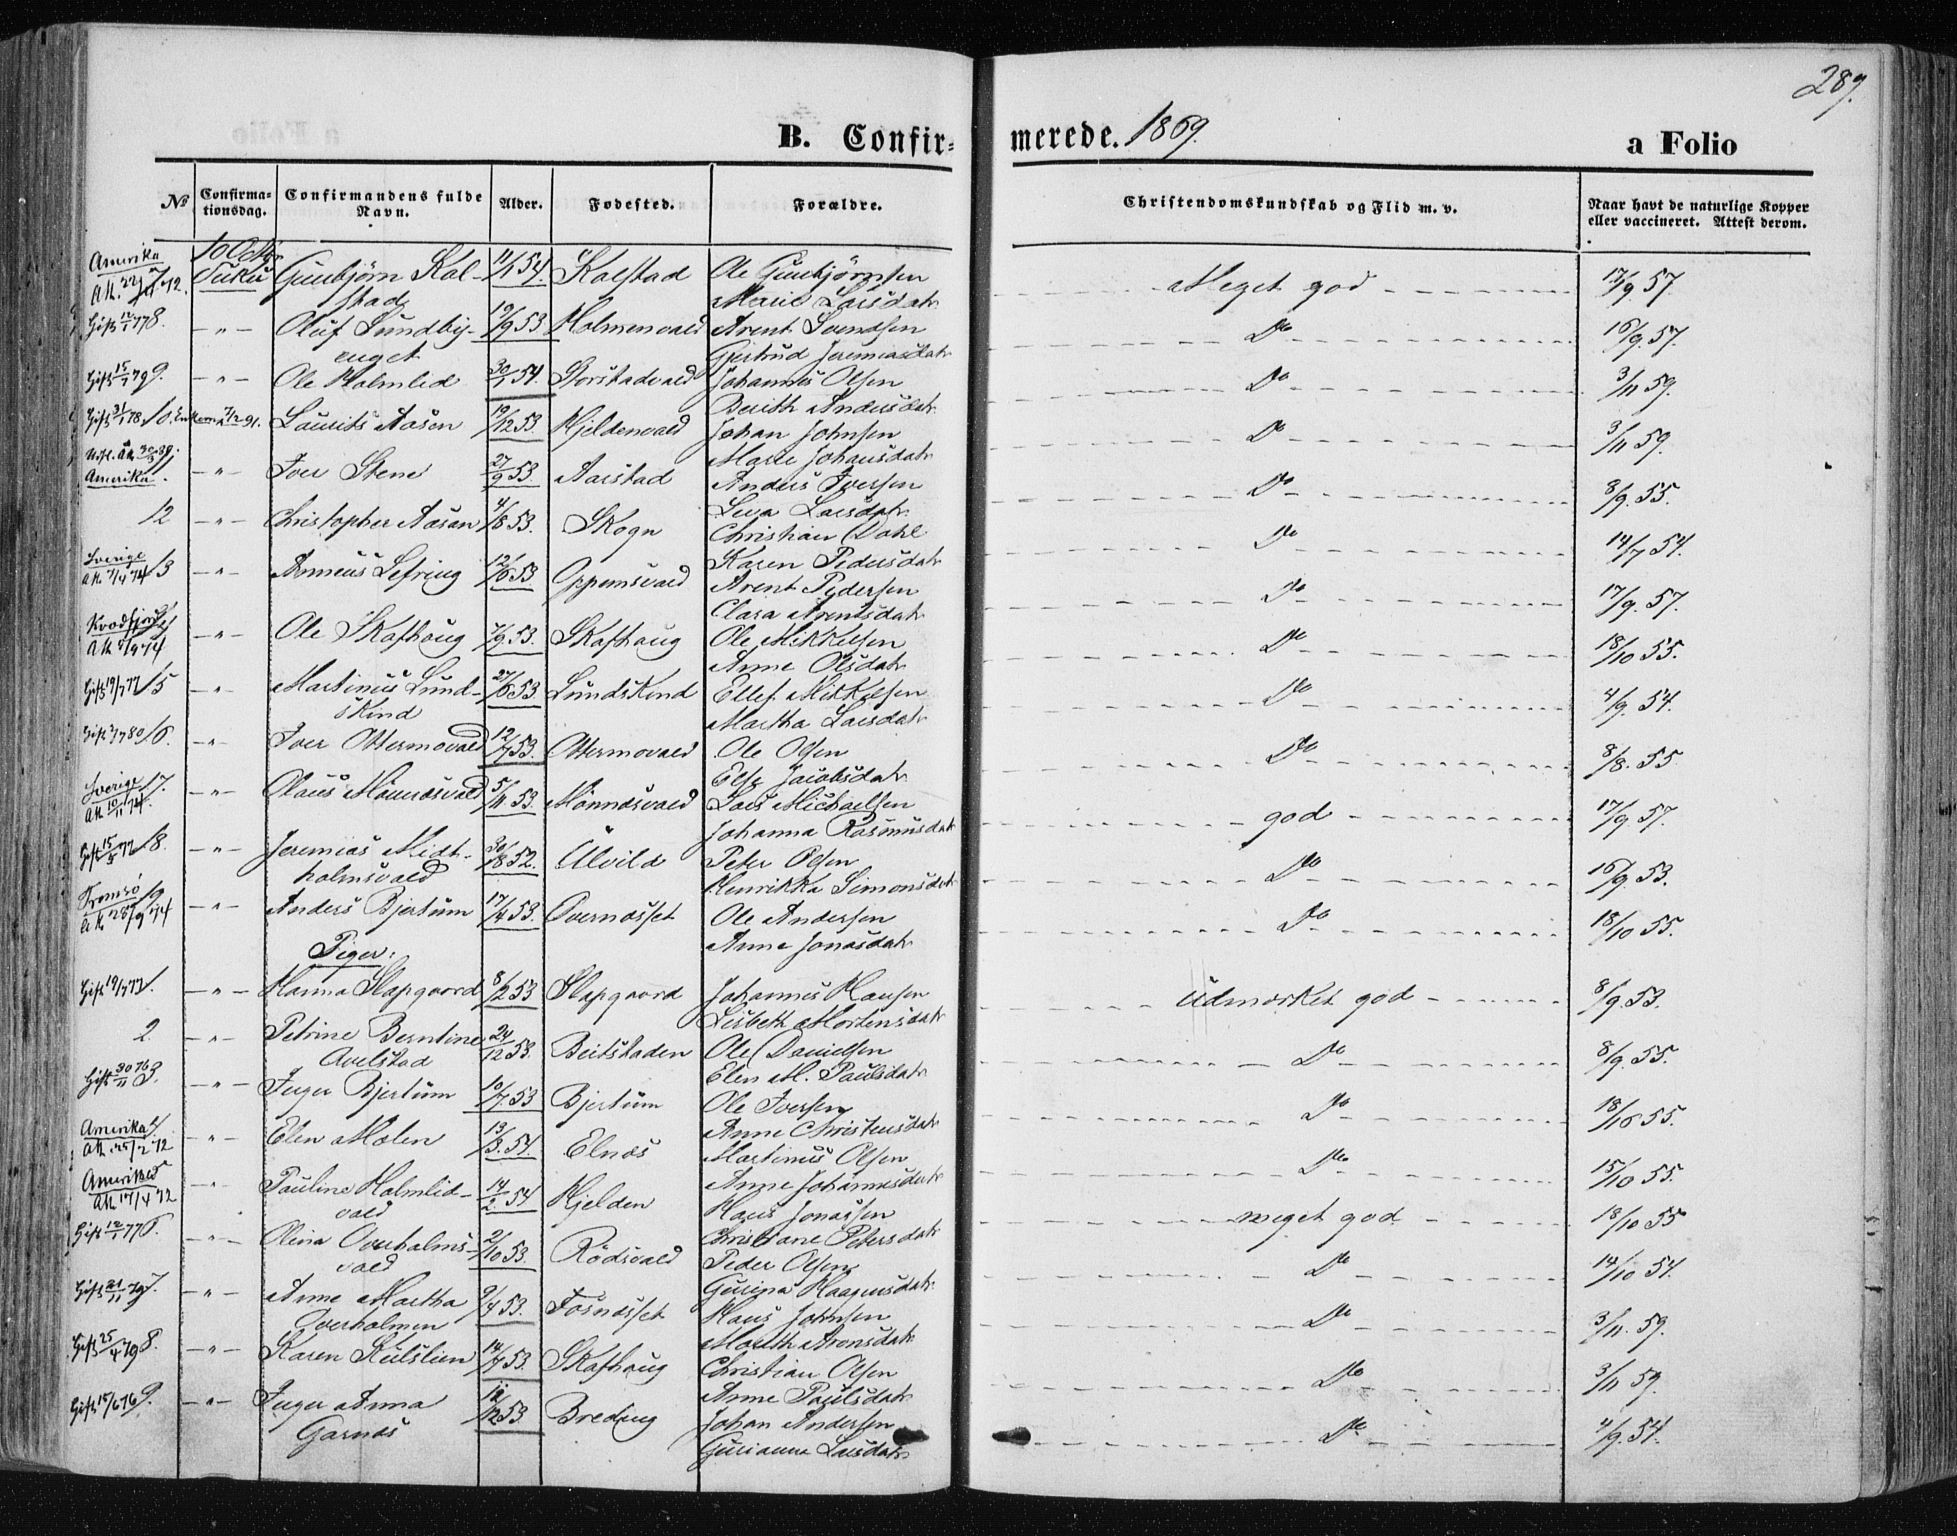 289.
B. Confir-
merede. 1869.
a Folio
No
Confirma-
tionsdag.
Confirmandens fulde
Navn.
Alder.
Fødested.
Forældre.
Christendomskundskab og Flid m. v.
Naar havt de naturlige Kopper
eller vaccineret. Attest derom.
Amerika 7 10 Octbr Gunbjørn Kal- 11/1 54. Kalstad Ole Gunbjørnsen Meget god 17/9 57.
stad Marie Larsdatr
Gift 12/1 77 8. -"- Oluf Lundby- 19/9 53 Holmenvald Arent Svendsen Do 16/9. 57.
enget Gjertrud Jeremiasdatr
Gift 15/7 79 9. -"- Ole Holmlid 30/1 54. Storstadvald Johannes Olsen Do 3/11 59.
Berith Andersdatr
Gift 31/1 78 10. Laurits Aasen 19/12 53. Hjeldenvald Johan Johnsen Do 3/11 59.
Marie Johansdatr
Amerika. 11 -"- Iver Stene 27/9 53. Aarstad Anders Iversen Do 8/9. 55.
Larsdatr
12 -"- Christopher Aasan 4/8 53. Skogn Christian Dahl Do 14/7 54.
Karen Pedersdatr
Sverige
Att. 7/4 74 13 -"- Anneus Lefring 12/6 53. Oppemsvald Arent Pedersen Do 17/9. 57.
Clara Arentsdatr
Kvædfjord 14 -"- Ole Skafhaug 7/9 53. Skafhaug Ole Mikkelsen Do 18/10 55.
Anne Olsdatr
Gift 19/7 77 15 -"- Martinus Lund- 27/6 53. Lundskind Ellef Mikkelsen Do 4/9. 54.
skind Martha Larsdatr
16. -"- Iver Ottermovald 12/7 53. Ottermovald Ole Olsen Do 8/8. 55
Else Jacobsdatr
Sverige 17. -"- Olaus Mønnæsvald 5/11 53. Mønnæsvald Lars Michaelsen god 17/9 57.
Att. 10/11 74. Johanna Rasmusdatr
Gift 15/5 77 18. -"- Jeremias Midt- 30/8 52. Ulvild Peter Olsen Do 16/9. 53.
holmsvald Henrikka Simonsdatr
Tromsø 19
Att. 28/9 74 -"- Anders Bjertum 17/4 53. Overnæsset Ole Andersen Do 18/10 55.
Anne Jonasdatr
Piger:
Gift 19/7 77 1. -"- Hanna Slapgaard 8/2 53 Slapgaard Johannes Hansen Udmærket god 8/9. 53.
Lisbeth Mortensdatr
2. -"- Petrine Berntine 24/12 53. Beitstaden Ole Danielsen Do 8/9. 55.
Avelstad Elen M. Paulsdatr
Gift 30/11 76 3. -"- Inger Bjertum 10/7. 53 Bjertum Ole Iversen Do 18/10 55.
Anne Christensdatr
Amerika 4
-"- Elen Molen 13/3. 54. Elnæs Martinus Olsen Do 15/10 55.
Anne Johannesdatr
Amerika 5
Att. 17/4 72 -"- Pauline Holmlid- 14/2. 54 Hjelden Hans Jonassen meget god 18/10 55
vald Christiane Petersdatr
Gift 12/1 77 6. -"- Olina Overholms- 2/10 53. Rødsvald Peder Olsen Do 14/10 54.
vald Gurina Haagensdatr
Gift 21/11 79 7. -"- Anne Martha 9/4 53. Fosnæsset Hans Johnsen Do 3/11. 59.
Overholmen Marith Aronsdatr
Gift 25/4 79 8. -"- Karen Kulslien 14/7 53. Skafhaug Christian Olsen Do 3/11 59.
Anne Paulsdatr
Gift 15/6 76 9. -"- Inger Anna 12/12 53. Breding Johan Andersen Do 4/9. 54.
Garnæs Gurianna Larsdatr